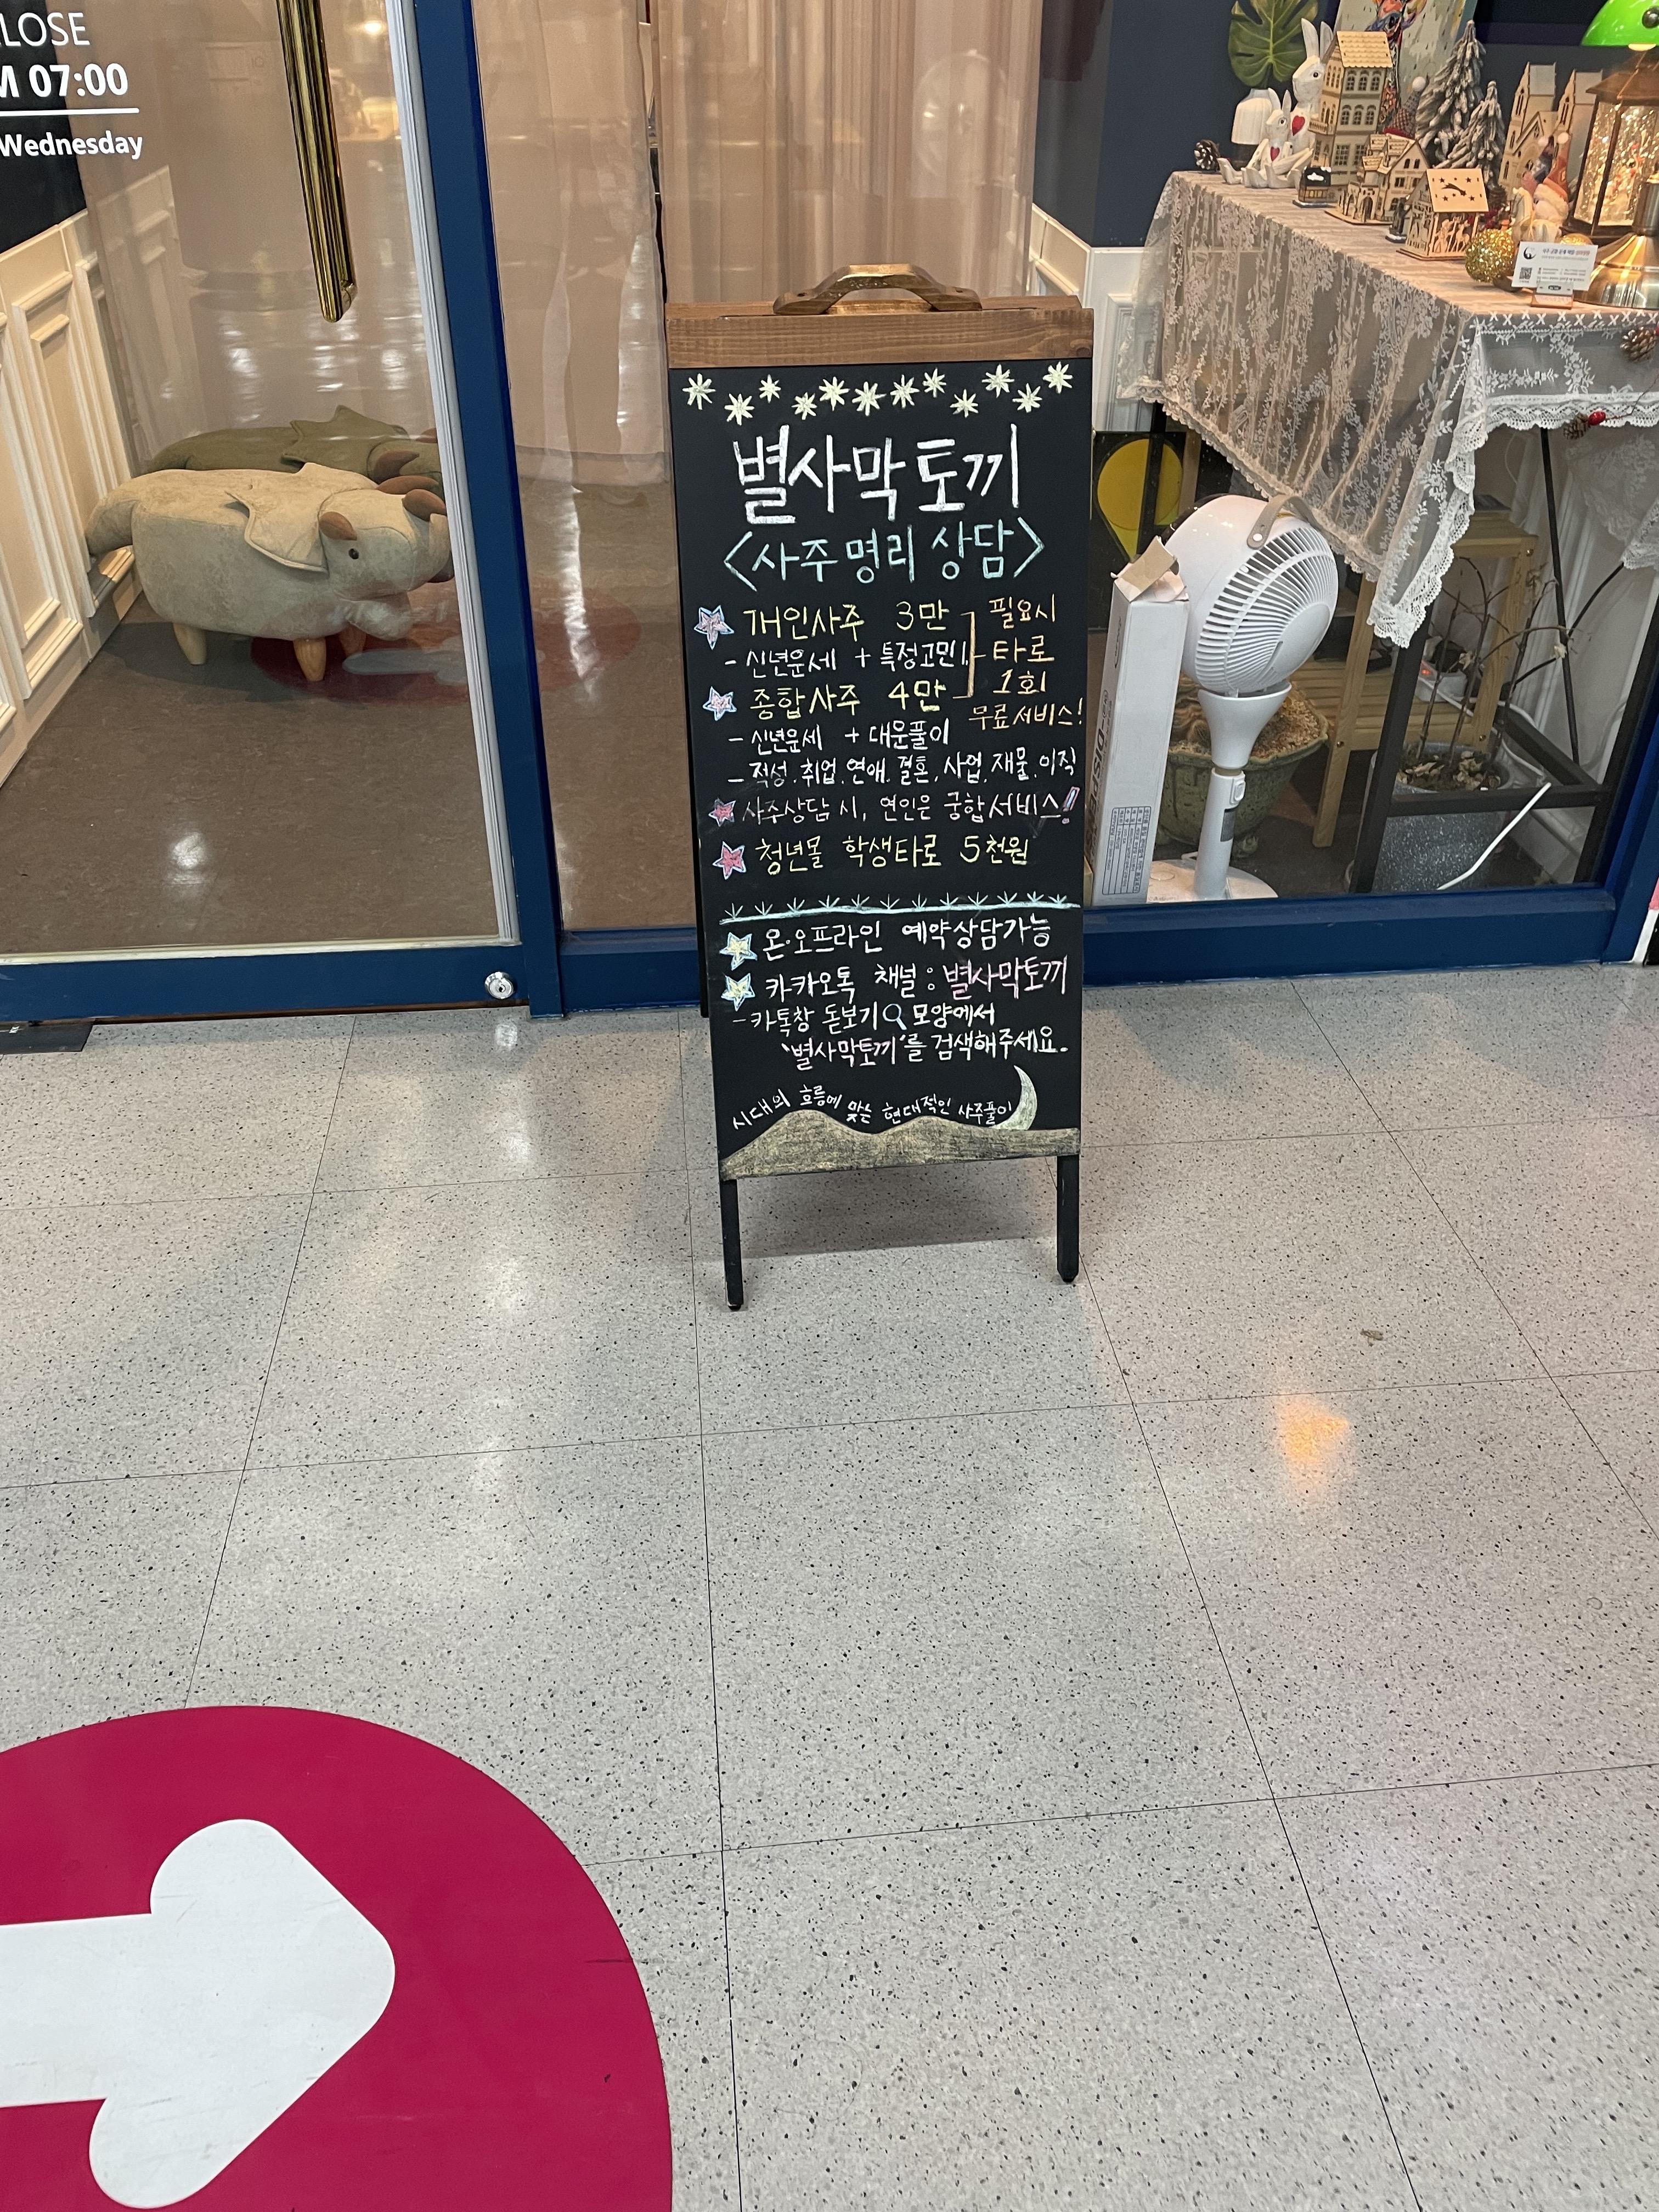 LOSE
M 07:00
Wednesday
별사막토끼
<사주명리 상담>
개인사주 3만
- 신년운세 + 특정고민1
종합사주 4만
필요시
타로
1회
무료서비스!
- 신년운세 + 대운풀이
- 적성.취업.연애.결혼.사업.재물.이직
사주상담 시, 연인은 궁합서비스!
청년몰 학생타로 5천원
온·오프라인 예약상담가능
카카오톡 채널 : 별사막토끼
- 카톡창 돋보기 모양에서
'별사막토끼'를 검색해주세요.
시대의 흐름에 맞는 현대적인 사주풀이